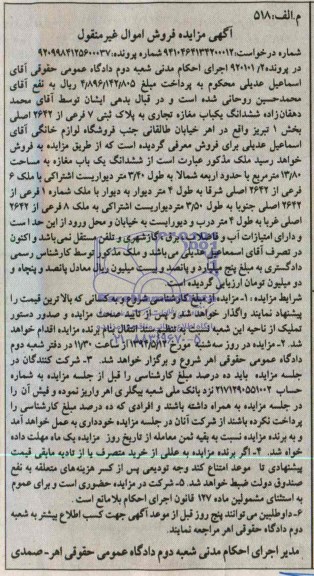 م.الف:۵۱۸
آگهی مزایده فروش اموال غیرمنقول
شماره درخواست:۹۴۱۰۴۶۴۱۳۴۲۰۰۰۱۲ شماره پرونده:۹۲۰۹۹۸۴۱۲۵۶۰۰۰۳۷
در پرونده۹۲۰۱۰۱/۲ اجرای احکام مدنی شعبه دوم دادگاه عمومی حقوقی آقای
اسماعیل عدیلی محکوم به پرداخت مبلغ ۴/۸۹۶/۱۴۲/۸۰۵ ریال به نفع آقای
محمدحسین روحانی شده است و در قبال بدهی ایشان توسط آقای محمد
دهقان‌زاده ششدانگ یکباب مغازه تجاری به پلاک ثبتی ۷ فرعی از ۲۶۴۲ اصلی
بخش ۱ تبریز واقع در اهر خیابان طالقانی جنب فروشگاه لوازم خانگی آقای
اسماعیل عدیلی برای فروش معرفی گردیده است که از طریق مزایده به فروش
خواهد رسید ملک مذکور عبارت است از ششدانگ یک باب مغازه به مساحت
۱۳/۸۰ مترمربع با حدود اربعه شمالا به طول ۳/۴۰ متر دیواریست اشتراکی با ملک ۶
فرعی از ۲۶۴۲ اصلی شرقا به طول ۴ متر دیوار به دیوار با ملک شماره ۱ فرعی از
۲۶۴۲ اصلی جنوبا به طول ۳/۵۰ متر دیواریست اشتراکی به ملک ۸ فرعی از ۲۶۴۲
اصلی غربا به طول ۴ متر درب و دیواریست به خیابان و محل ورود از این حد است
و دارای امتیازات آب و فاضلاب، برق، گاز شهری و تلفن مستقل نمی‌باشد و اکنون
در تصرف آقای اسماعیل عدیلی می‌باشد و ملک مذکور توسط کارشناس رسمی
دادگستری به مبلغ پنج میلیارد و پانصد و بیست میلیون ریال معادل پانصد و پنجاه و
دو میلیون تومان ارزیابی گردیده است.
شرایط مزایده : ۱- مزایده از مبلغ کارشناسی شروع و به کسانی که بالاترین قیمت را
پیشنهاد نمایند واگذار خواهد شد و پس از تایید صحت مزایده و صدور دستور
تملیک از ناحیه این شعبه نسبت به تنظیم سند انتقال بنام برنده مزایده اقدام خواهد
شد. ۲- مزایده در روز سه‌شنبه مورخ ۱۳۹۴/۵/۱۳ از ساعت ۱۷/۳۰ در دفتر شعبه دوم
دادگاه عمومی حقوقی اهر شروع و برگزار خواهد شد. ۳- شرکت کنندگان در
جلسه مزایده باید ده درصد مبلغ کارشناسی را قبل از جلسه مزایده به شماره
حساب ۲۱۷۱۲۹۰۵۵۱۰۰۲ نزد بانک ملی شعبه بیگلری اهر واریز نموده و فیش آن را
در جلسه مزایده به همراه داشته باشند و افرادی که ده درصد مبلغ کارشناسی را
پرداخت نکرده باشند از شرکت آنان در جلسه مزایده خودداری به عمل خواهد آمد
و به برنده مزایده نسبت به بقیه ثمن معامله از تاریخ روز مزایده یک ماه مهلت داده
خواه شد. ۴- اگر برنده مزایده به عللی از خرید منصرف یا از تادیه مابقی قیمت
پیشنهادی تا موعد امتناع کند وجه تودیعی پس از کسر هزینه‌های متعلقه به نفع
صندوق دولت ضبط خواهد شد. ۵- شرکت در مزایده حضوری است و برای عموم
به استثنای مشمولین ماده ۱۲۷ قانون اجرای احکام بلامانع است.
۶- داوطلبین می‌توانند پنج روز قبل از موعد آگهی جهت کسب اطلاع بیشتر به شعبه
دوم دادگاه حقوقی اهر مراجعه نمایند.
مدیر اجرای احکام مدنی شعبه دوم دادگاه عمومی حقوقی اهر- صمدی